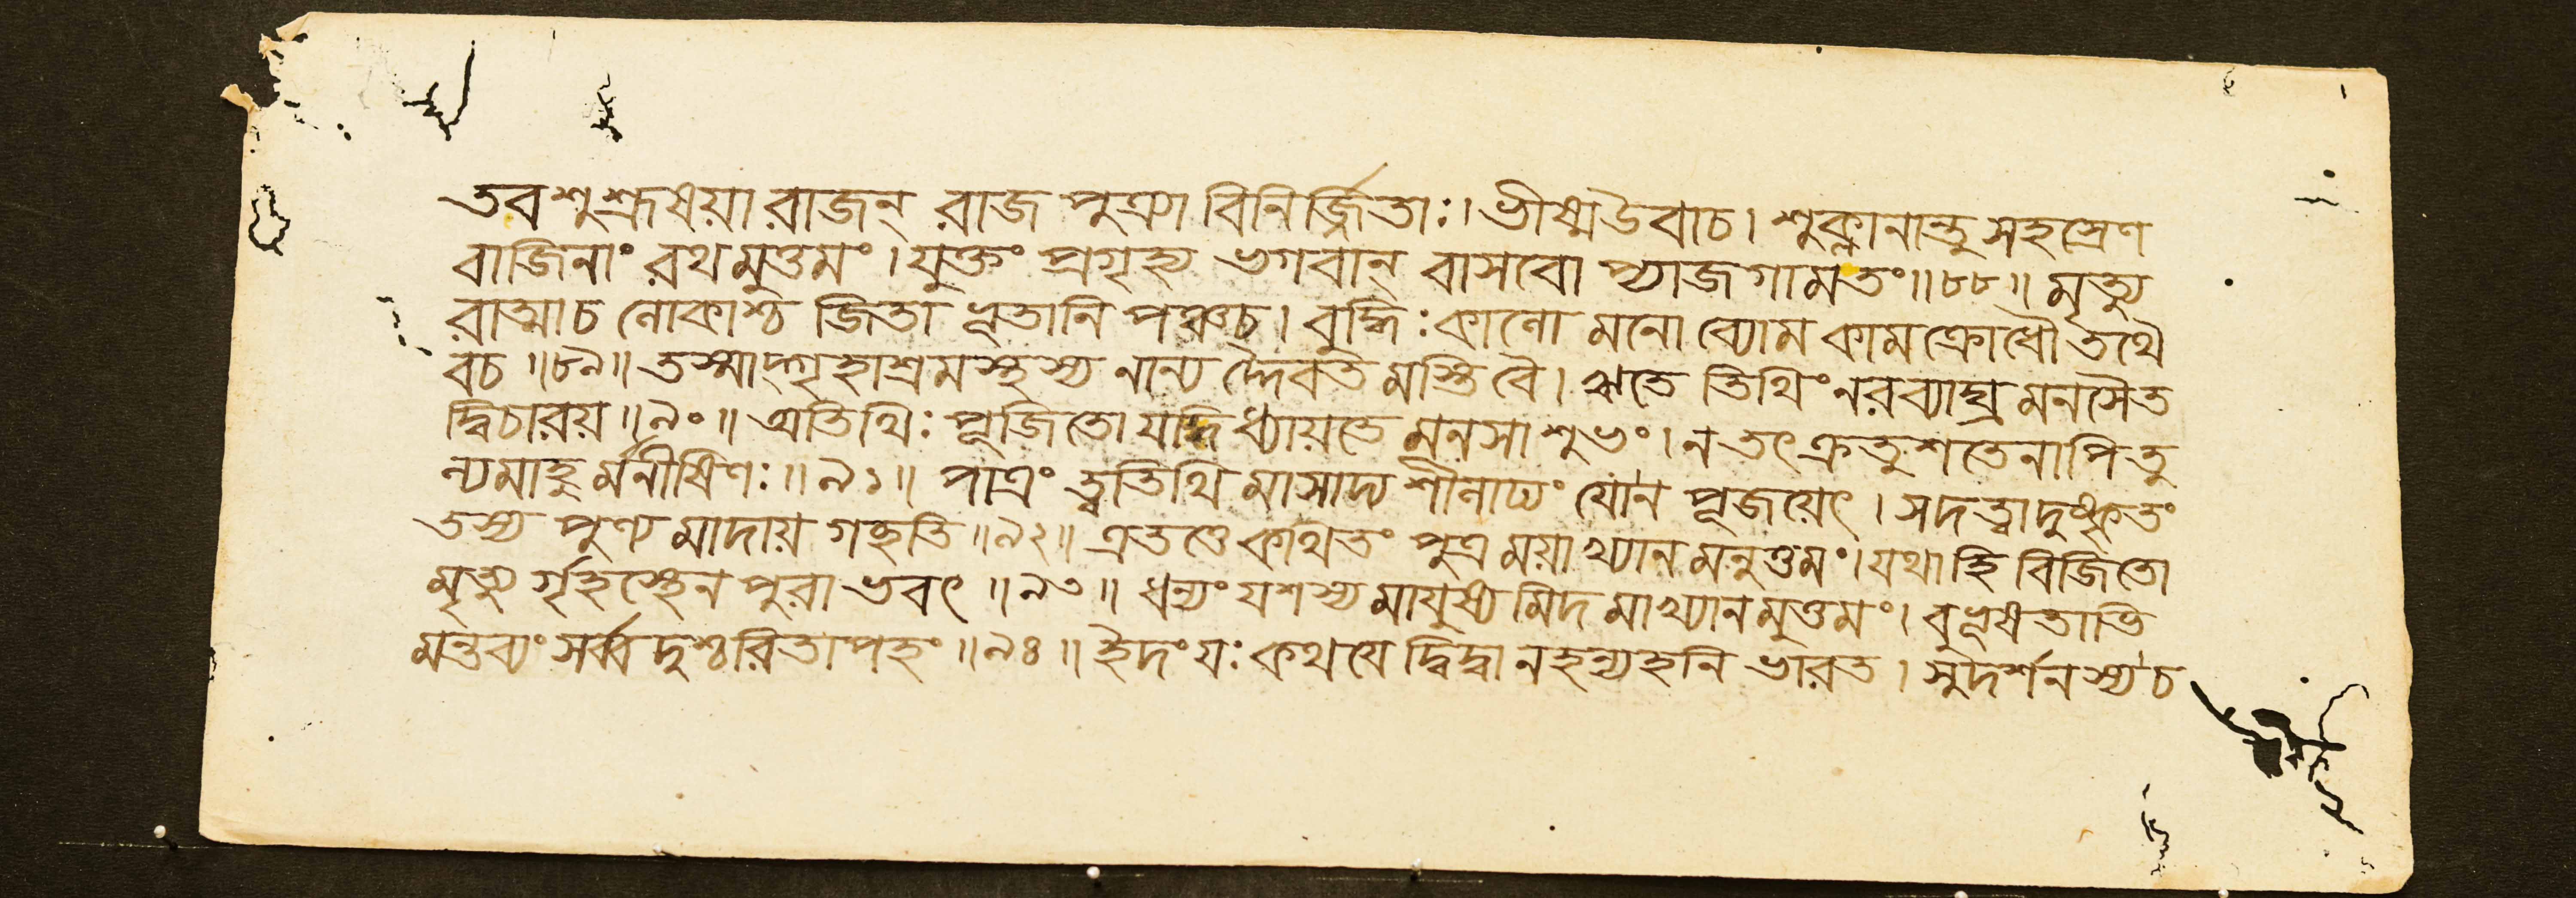 তব শুশ্রূষয়া রাজন্ রাজ পুত্র্যা বিনির্জ্জিতাঃ। ভীষ্মউবাচ। শুক্লানান্তু সহস্রেণ
বাজিনাং রথমুত্তমং। যুক্তং প্রগৃহ্য ভগবান্ বাসবো প্যাজগামতং॥৮৮॥ মৃত্যু
রাত্মাচ লোকাশ্চ জিতা ভূতানি পঞ্চচ। বুদ্ধিঃ কালো মনো ব্যোম কামক্রোধৌ তথৈ
বচ॥৮৯॥ তস্মাদ্গৃহাশ্রমস্থস্য নান্য দ্দৈবত মস্তি বৈ। ঋতে তিথিং নরব্যাঘ্র মনসৈত
দ্বিচারয়॥৯০॥ অতিথিঃ পূজিতো যদ্ধি ধ্যায়তে মনসা শুভং। ন তৎ ক্রতু শতেনাপি তু
ল্যমাহু র্মনীষিণঃ॥৯১॥ পাত্রং ত্বতিথি মাসাদ্য শীলাঢ্যং যোন পূজয়েৎ। সদত্ত্বা দুষ্কৃতং
তস্য পুণ্য মাদায় গচ্ছতি॥৯২॥ এতত্তে কথিতং পুত্র ময়াখ্যান মনুত্তমং। যথা হি বিজিতো
মৃত্যু র্গৃহস্থেন পুরা ভবৎ॥৯৩॥ ধন্যং যশস্য মাযুষ্য মিদ মাখ্যানমুত্তমং। বুভূষতাভি
মন্তব্যং সর্ব্ব দুশ্চরিতাপহং॥৯৪॥ ইদং যঃ কথয়ে দ্বিদ্বা নহন্যহনি ভারত। সুদর্শনস্য চ